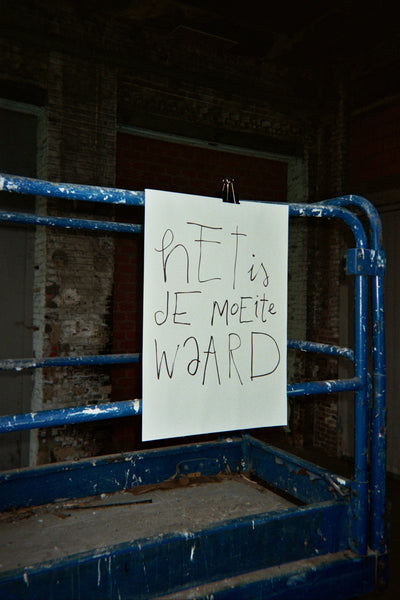 hET is
dE MOEitE
WaARD